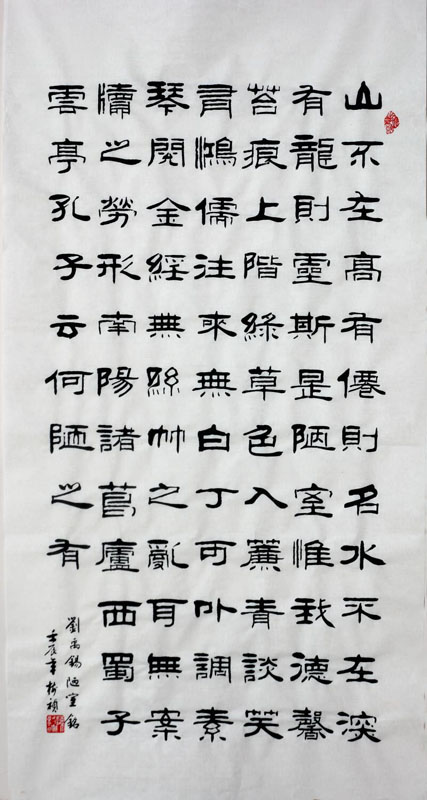 山不在高有僊則名水不在深
有龍則靈斯是陋室惟我德馨
苔痕上階綠草色入簾青談笑
有鴻儒往來無白丁可以調素
琴閱金經無絲竹之亂耳無案
牘之勞形南陽諸葛廬西蜀子
雲亭孔子云何陋之有
劉禹錫陋室銘
壬辰年